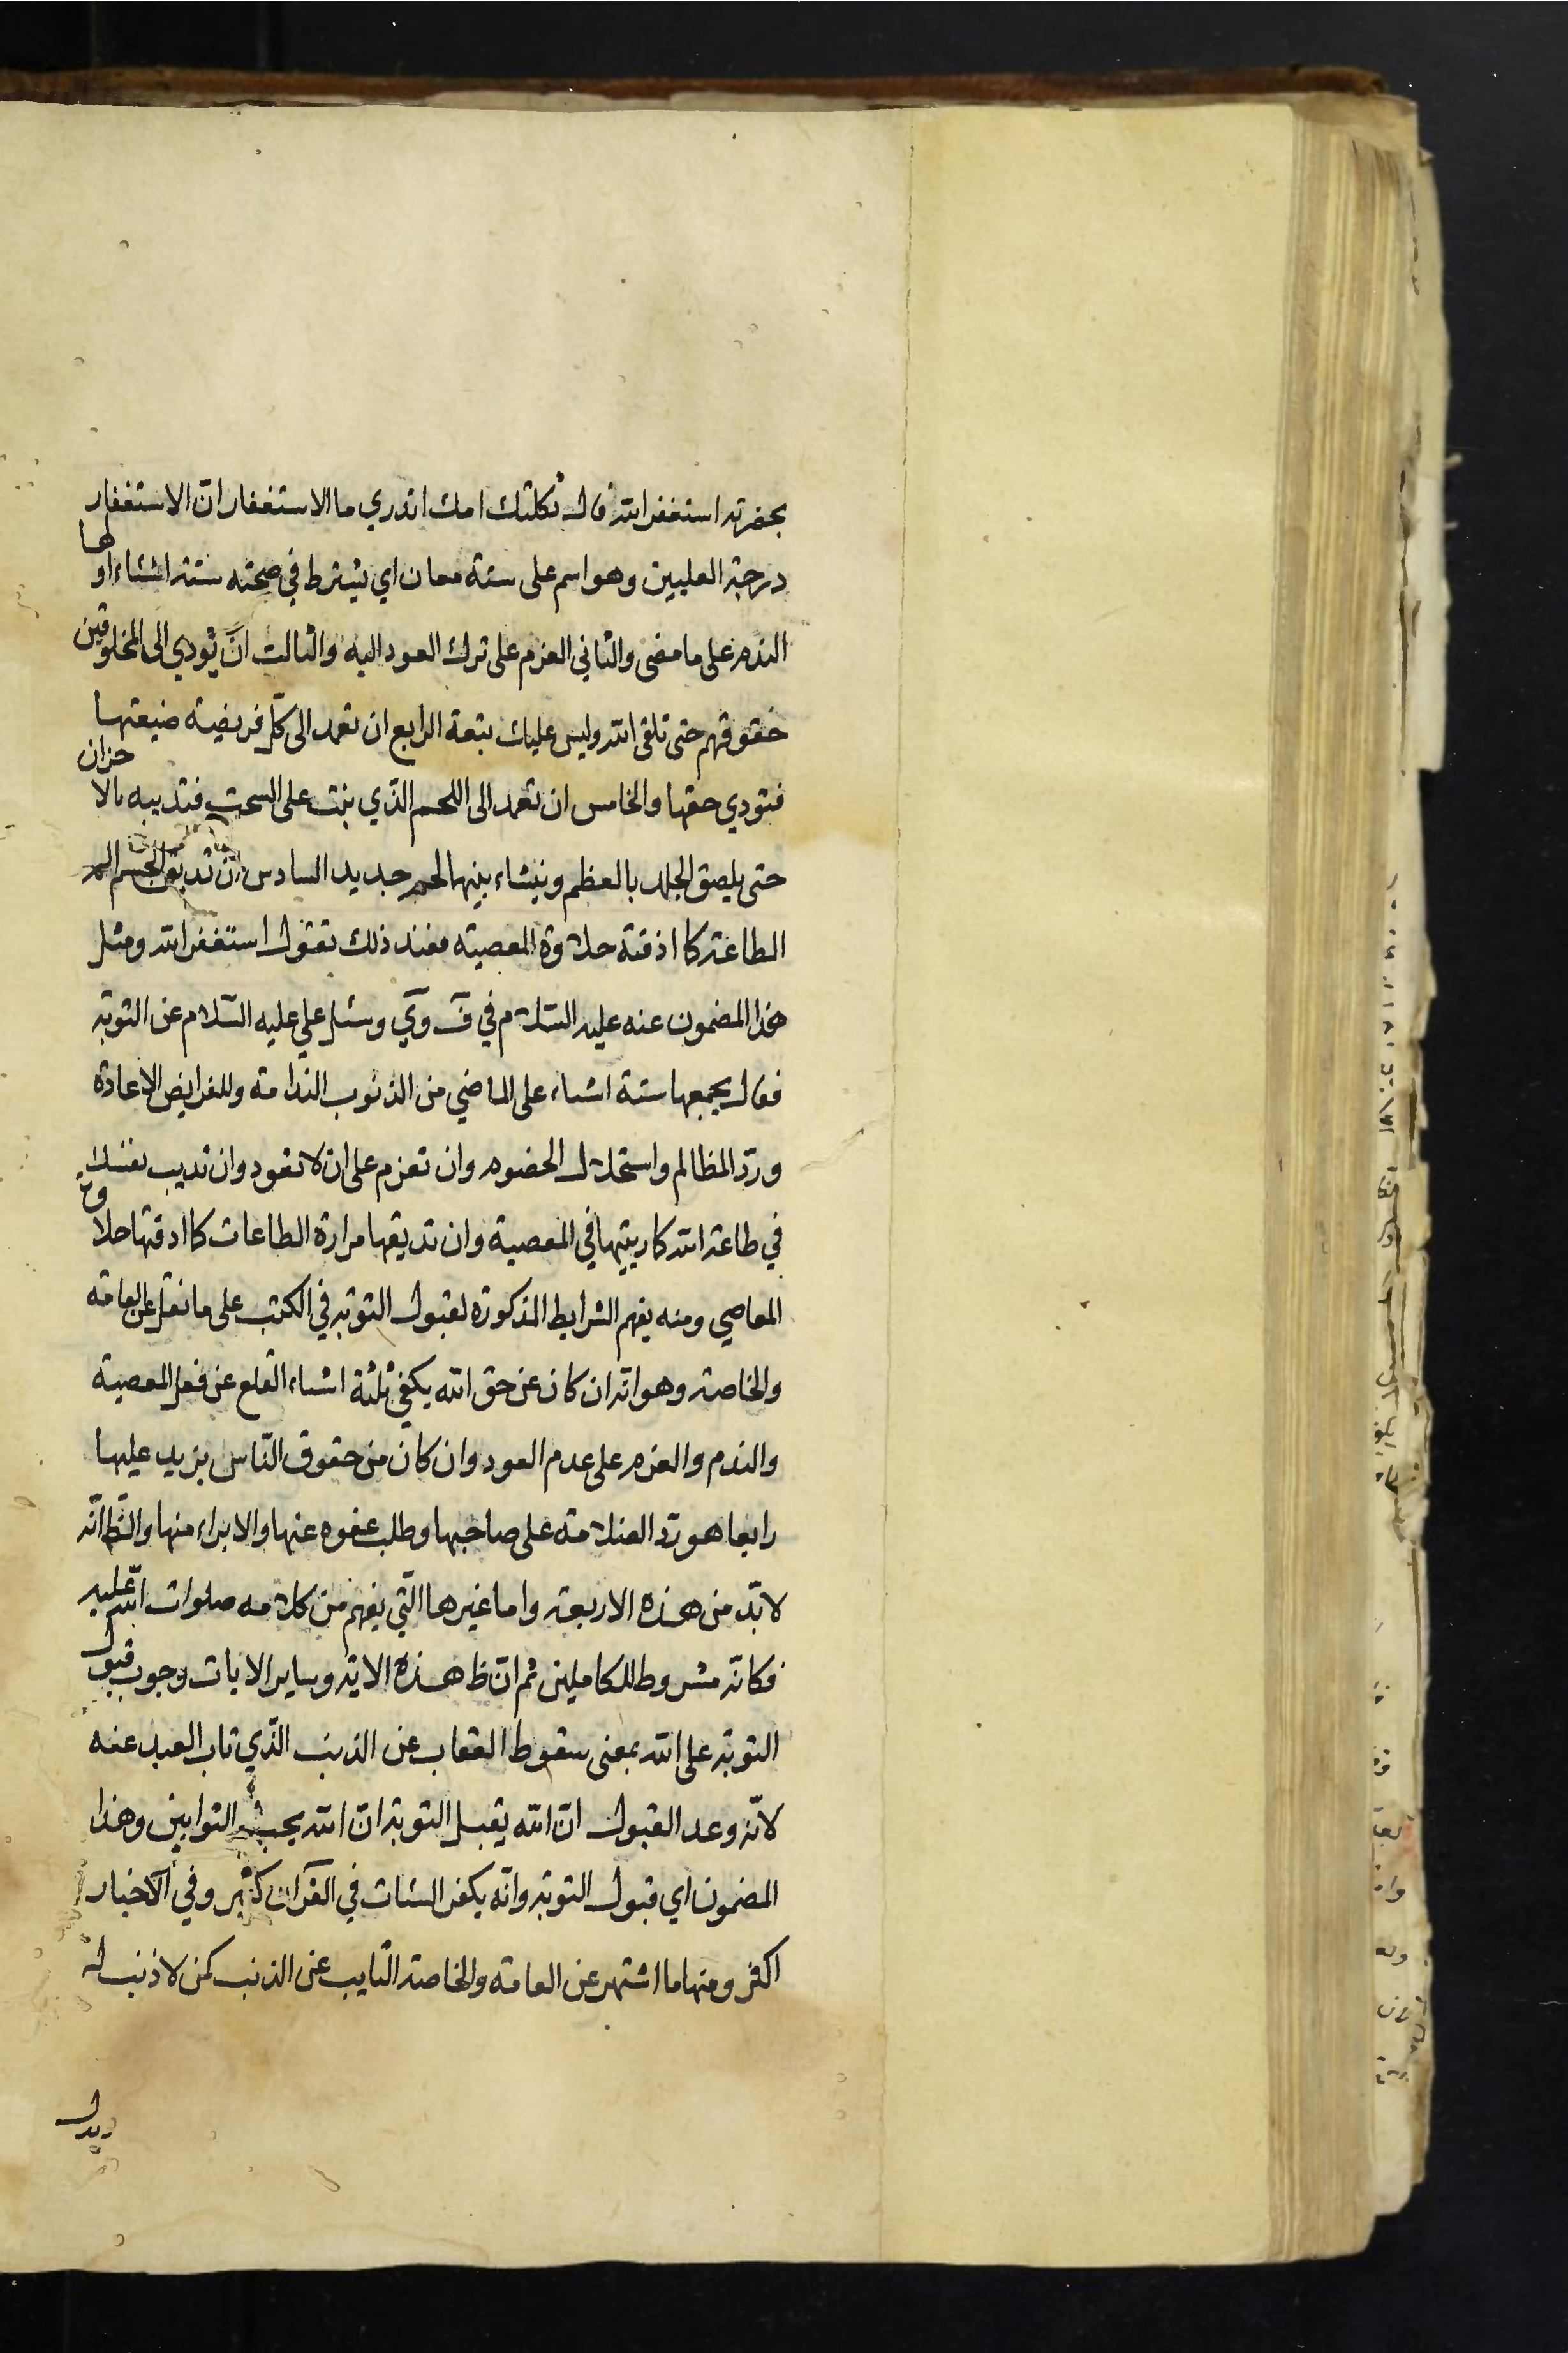 بحضرته استغفر الله قال ثكلتك امك اتدري ما الاستغفار ان الاستغفار
درجة العليين وهو اسم على ستة معان اي يشترط في صحته ستة اشياء اولها
الندم على ما مضى والثاني العزم على ترك العود اليه والثالث ان تؤدي الى المخلوقين
حقوقهم حتى تلقى الله وليس عليك تبعة الرابع ان تعمد الى كل فريضة ضيعتها
فتودي حقها والخامس ان تعمد الى اللحم الذي نبت على السحت فتذيبه بالاحزان
حتى يلصق الجلد بالعظم وينشاء بينهما لحم جديد السادس ان تذيق الجسم الم
الطاعة كما اذقته حلاوة المعصية فعند ذلك تقول استغفر الله ومثل
هذا المضمون عنه عليه السلام في ق وي وسئل علي عليه السلام عن التوبة
فقال يجمعها ستة اشياء على الماضي من الذنوب الندامة وللفرايض الاعادة
ورد المظالم واستحلال الخصوم وان تعزم على ان لا تعود وان تديب نفسك
في طاعة الله كما ربيتها في المعصية وان تذيقها مرارة الطاعات كما اذقتها حلاوة
المعاصي ومنه يفهم الشرايط المذكورة لقبول التوبة في الكتب على ما نقل عن العامة
والخاصة وهو انه ان كان عن حق الله يكفي ثلثة اشياء القلع عن فعل المعصية
والندم والعزم على عدم العود وان كان من حقوق الناس يزيد عليها
رابعا هو رد الظلامة على صاحبها وطلب عفوه عنها والابراء منها والظ انه
لا بد من هذه الاربعة واما غيرها التي يفهم من كلامه صلوات الله عليه
فكانه مشروط للكاملين ثم ان ظ هذه الاية وساير الايات وجوب قبول
التوبة على الله بمعنى سقوط العقاب عن الذنب الذي تاب العبد عنه
لانه وعد القبول ان الله يقبل التوبة ان الله يحب التوابين وهذا
المضمون اي قبول التوبة وانه يكفر السيئات في القرآن كثير وفي الاخبار
اكثر ومنها ما اشتهر عن العامة والخاصة التايب عن الذنب كمن لا ذنب له
ويدل